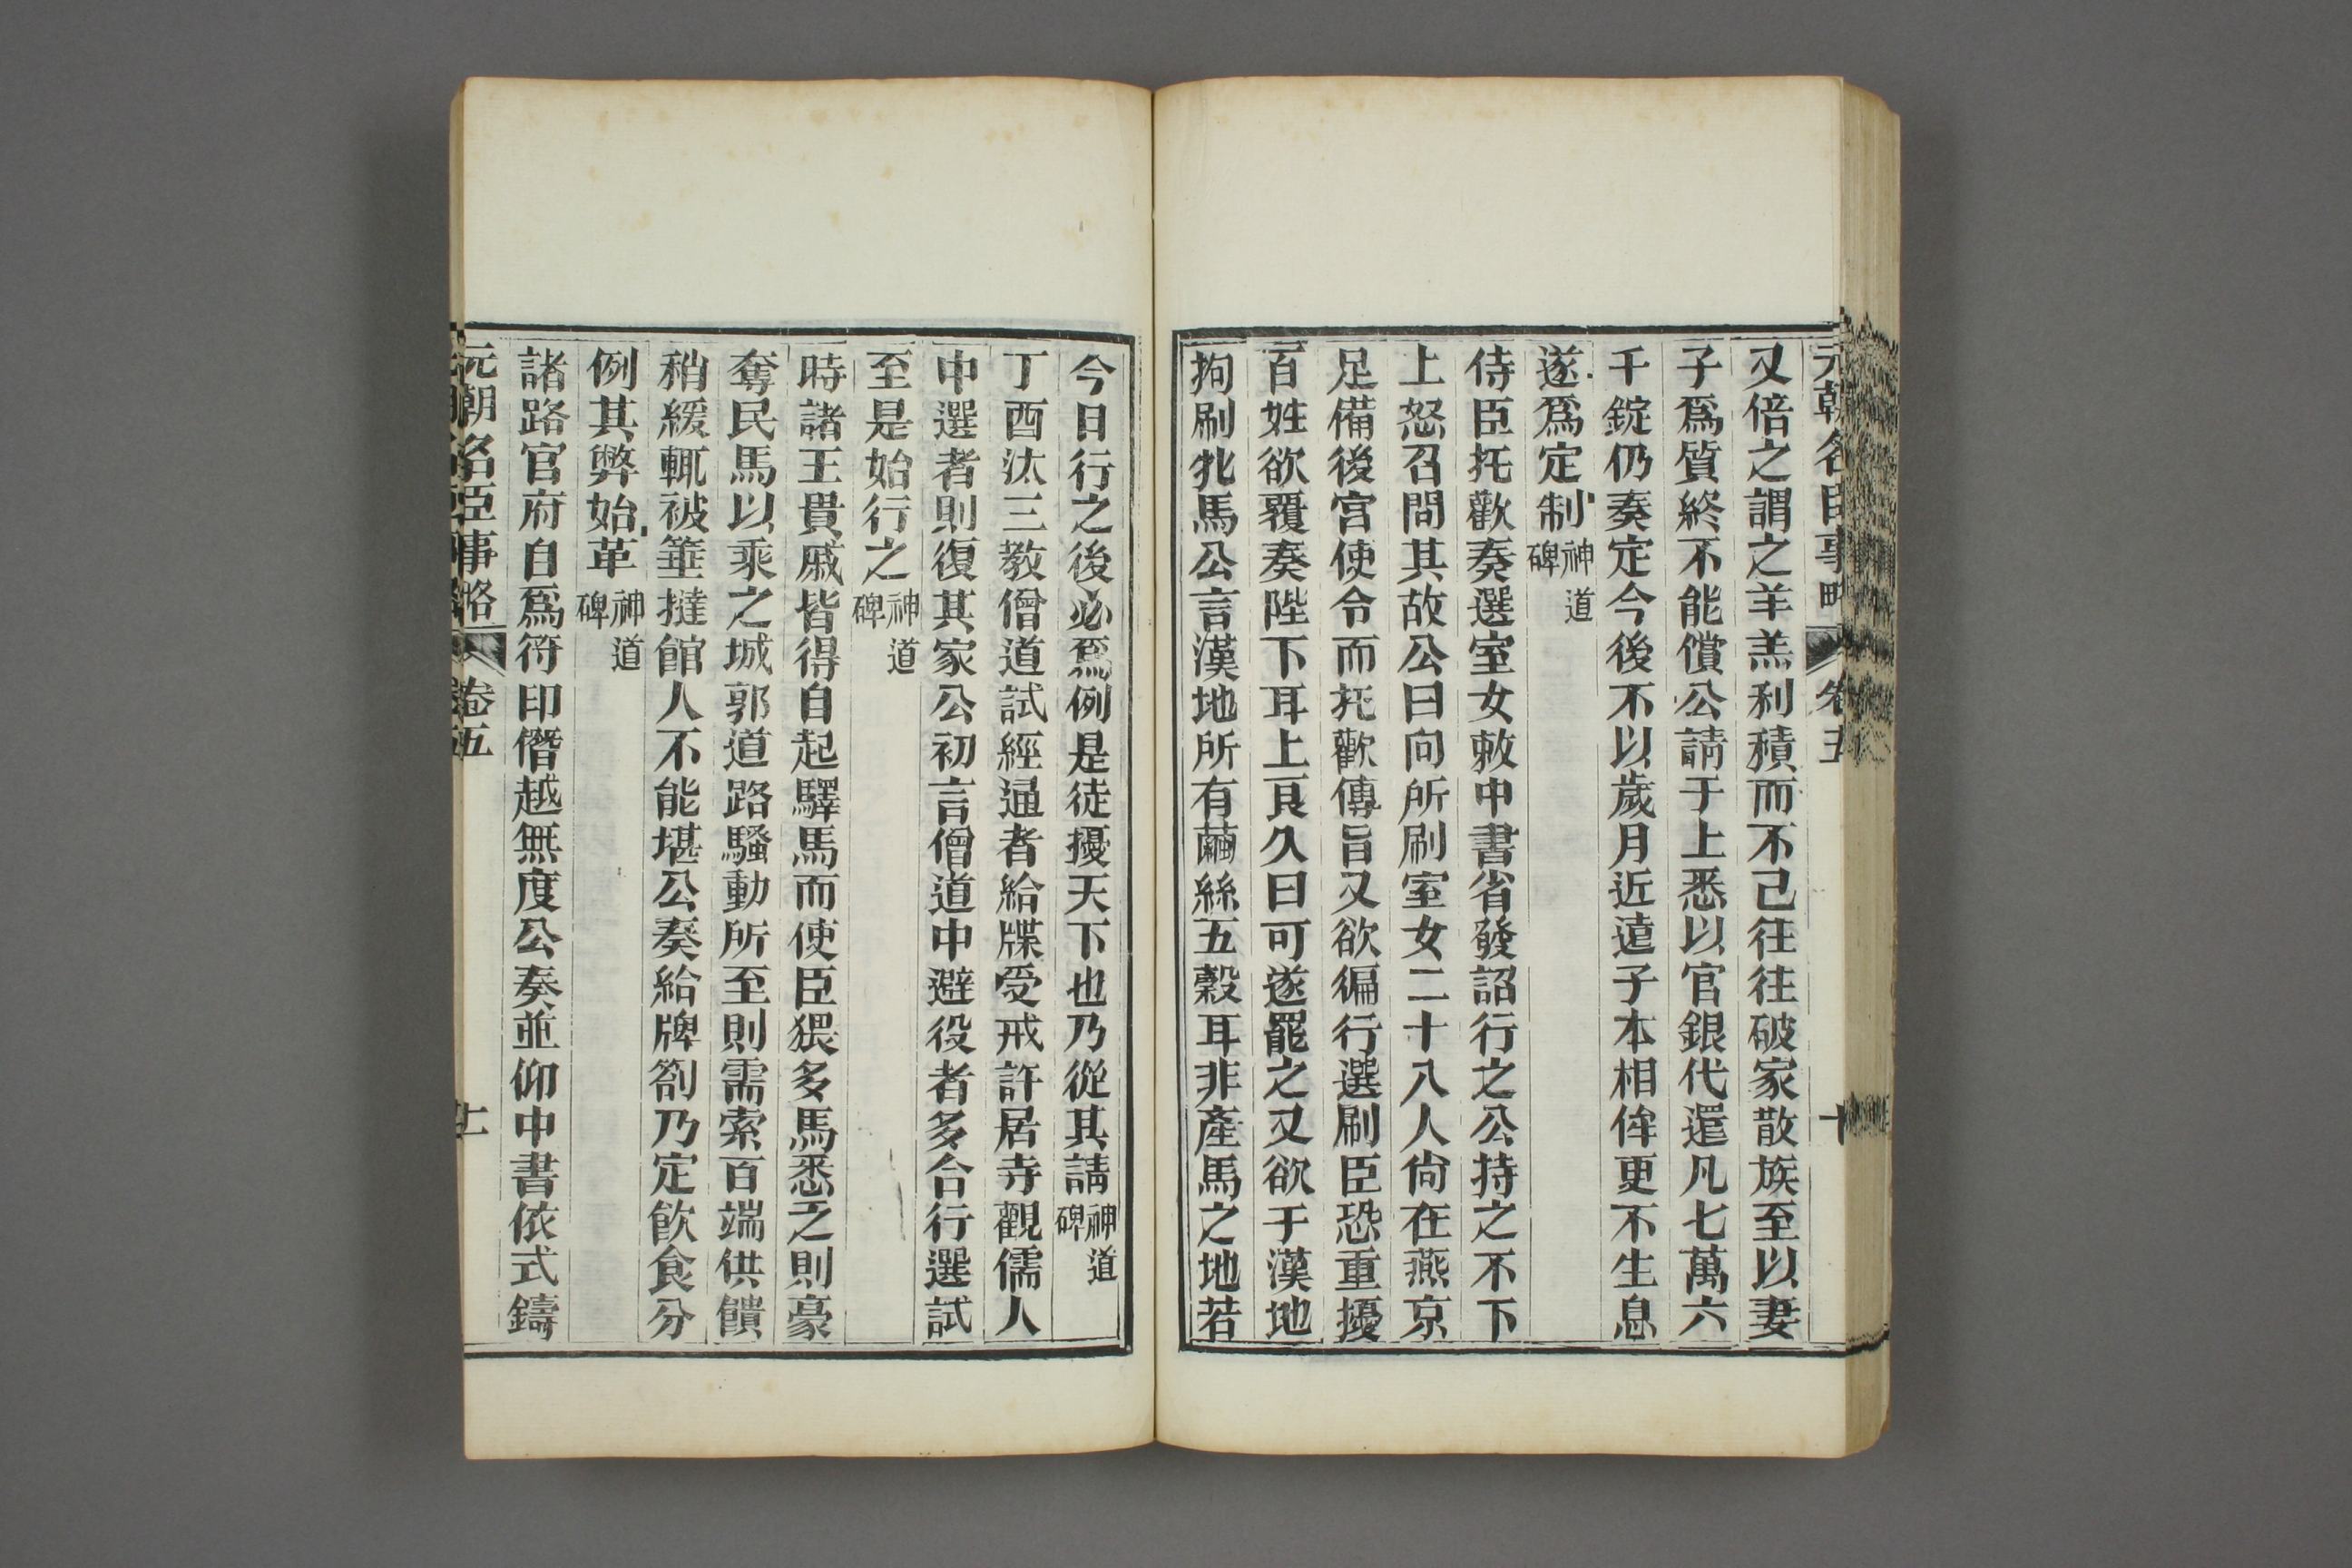 元朝名臣事略 卷五 十
又倍之謂之羊羔利積而不已往往破家散族至以妻
子爲質終不能償公請于上悉以官銀代還凡七萬六
千錠仍奏定今後不以歲月近遠子本相侔更不生息
遂爲定制神道碑
侍臣托歡奏選室女敕中書省發詔行之公持之不下
上怒召問其故公曰向所刷室女二十八人尙在燕京
足備後宮使令而托歡傳旨又欲徧行選刷臣恐重擾
百姓欲覆奏陛下耳上良久曰可遂罷之又欲于漢地
拘刷牝馬公言漢地所有繭絲五穀耳非產馬之地若
今日行之後必爲例是徒擾天下也乃從其請神道碑
丁酉汰三教僧道試經通者給牒受戒許居寺觀儒人
中選者則復其家公初言僧道中避役者多合行選試
至是始行之神道碑
時諸王貴戚皆得自起驛馬而使臣猥多馬悉乏則豪
奪民馬以乘之城郭道路騷動所至則需索百端供饋
稍緩輒被箠撻館人不能堪公奏給牌劄乃定飲食分
例其弊始革神道碑
諸路官府自爲符印僭越無度公奏並仰中書依式鑄
元朝名臣事略 卷五